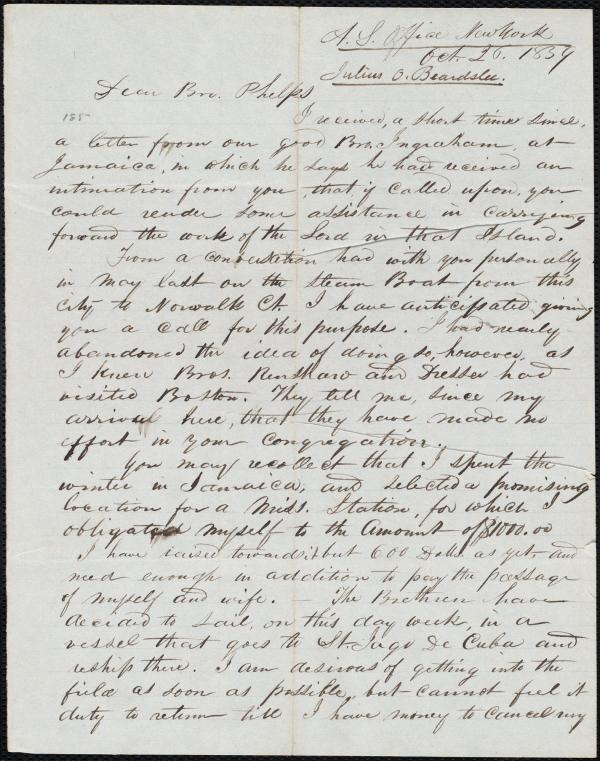 A. S. Office New York
Oct. 26. 1839
Julius O. Beardslee.
Dear Bro. Phelps
185
I received, a short time since,
a letter from our good Bro. Ingraham, at
Jamaica, in which he says he had received an
intimation from you, that if called upon, you
could render some assistance in carrying
forward the work of the Lord in that Island.
From a conversation had with you personally
in May last on the Steam Boat from this
City to Norwalk Ct. I have anticipated giving
you a call for this purpose. I had nearly
abandoned the idea of doing so, however, as
I knew Bros. Renshaw and Dresser had
visited Boston. They tell me, since my
arrival here, that they have made no
effort in your congregation.
You may recollect that I spent the
winter in Jamaica, and selected a promising
location for a Miss. Station, for which I
obligated myself to the amount of $1000.00
I have raised towards it but 600 Dolls. as yet and
need enough in addition to pay the passage
of myself and wife. — The Brethren have
decided to sail, on this day week, in a
vessel that goes to St. Jago De Cuba and
reship there. I am desirous of getting into the
field as soon as possible, but cannot feel it
duty to return till I have money to cancel my